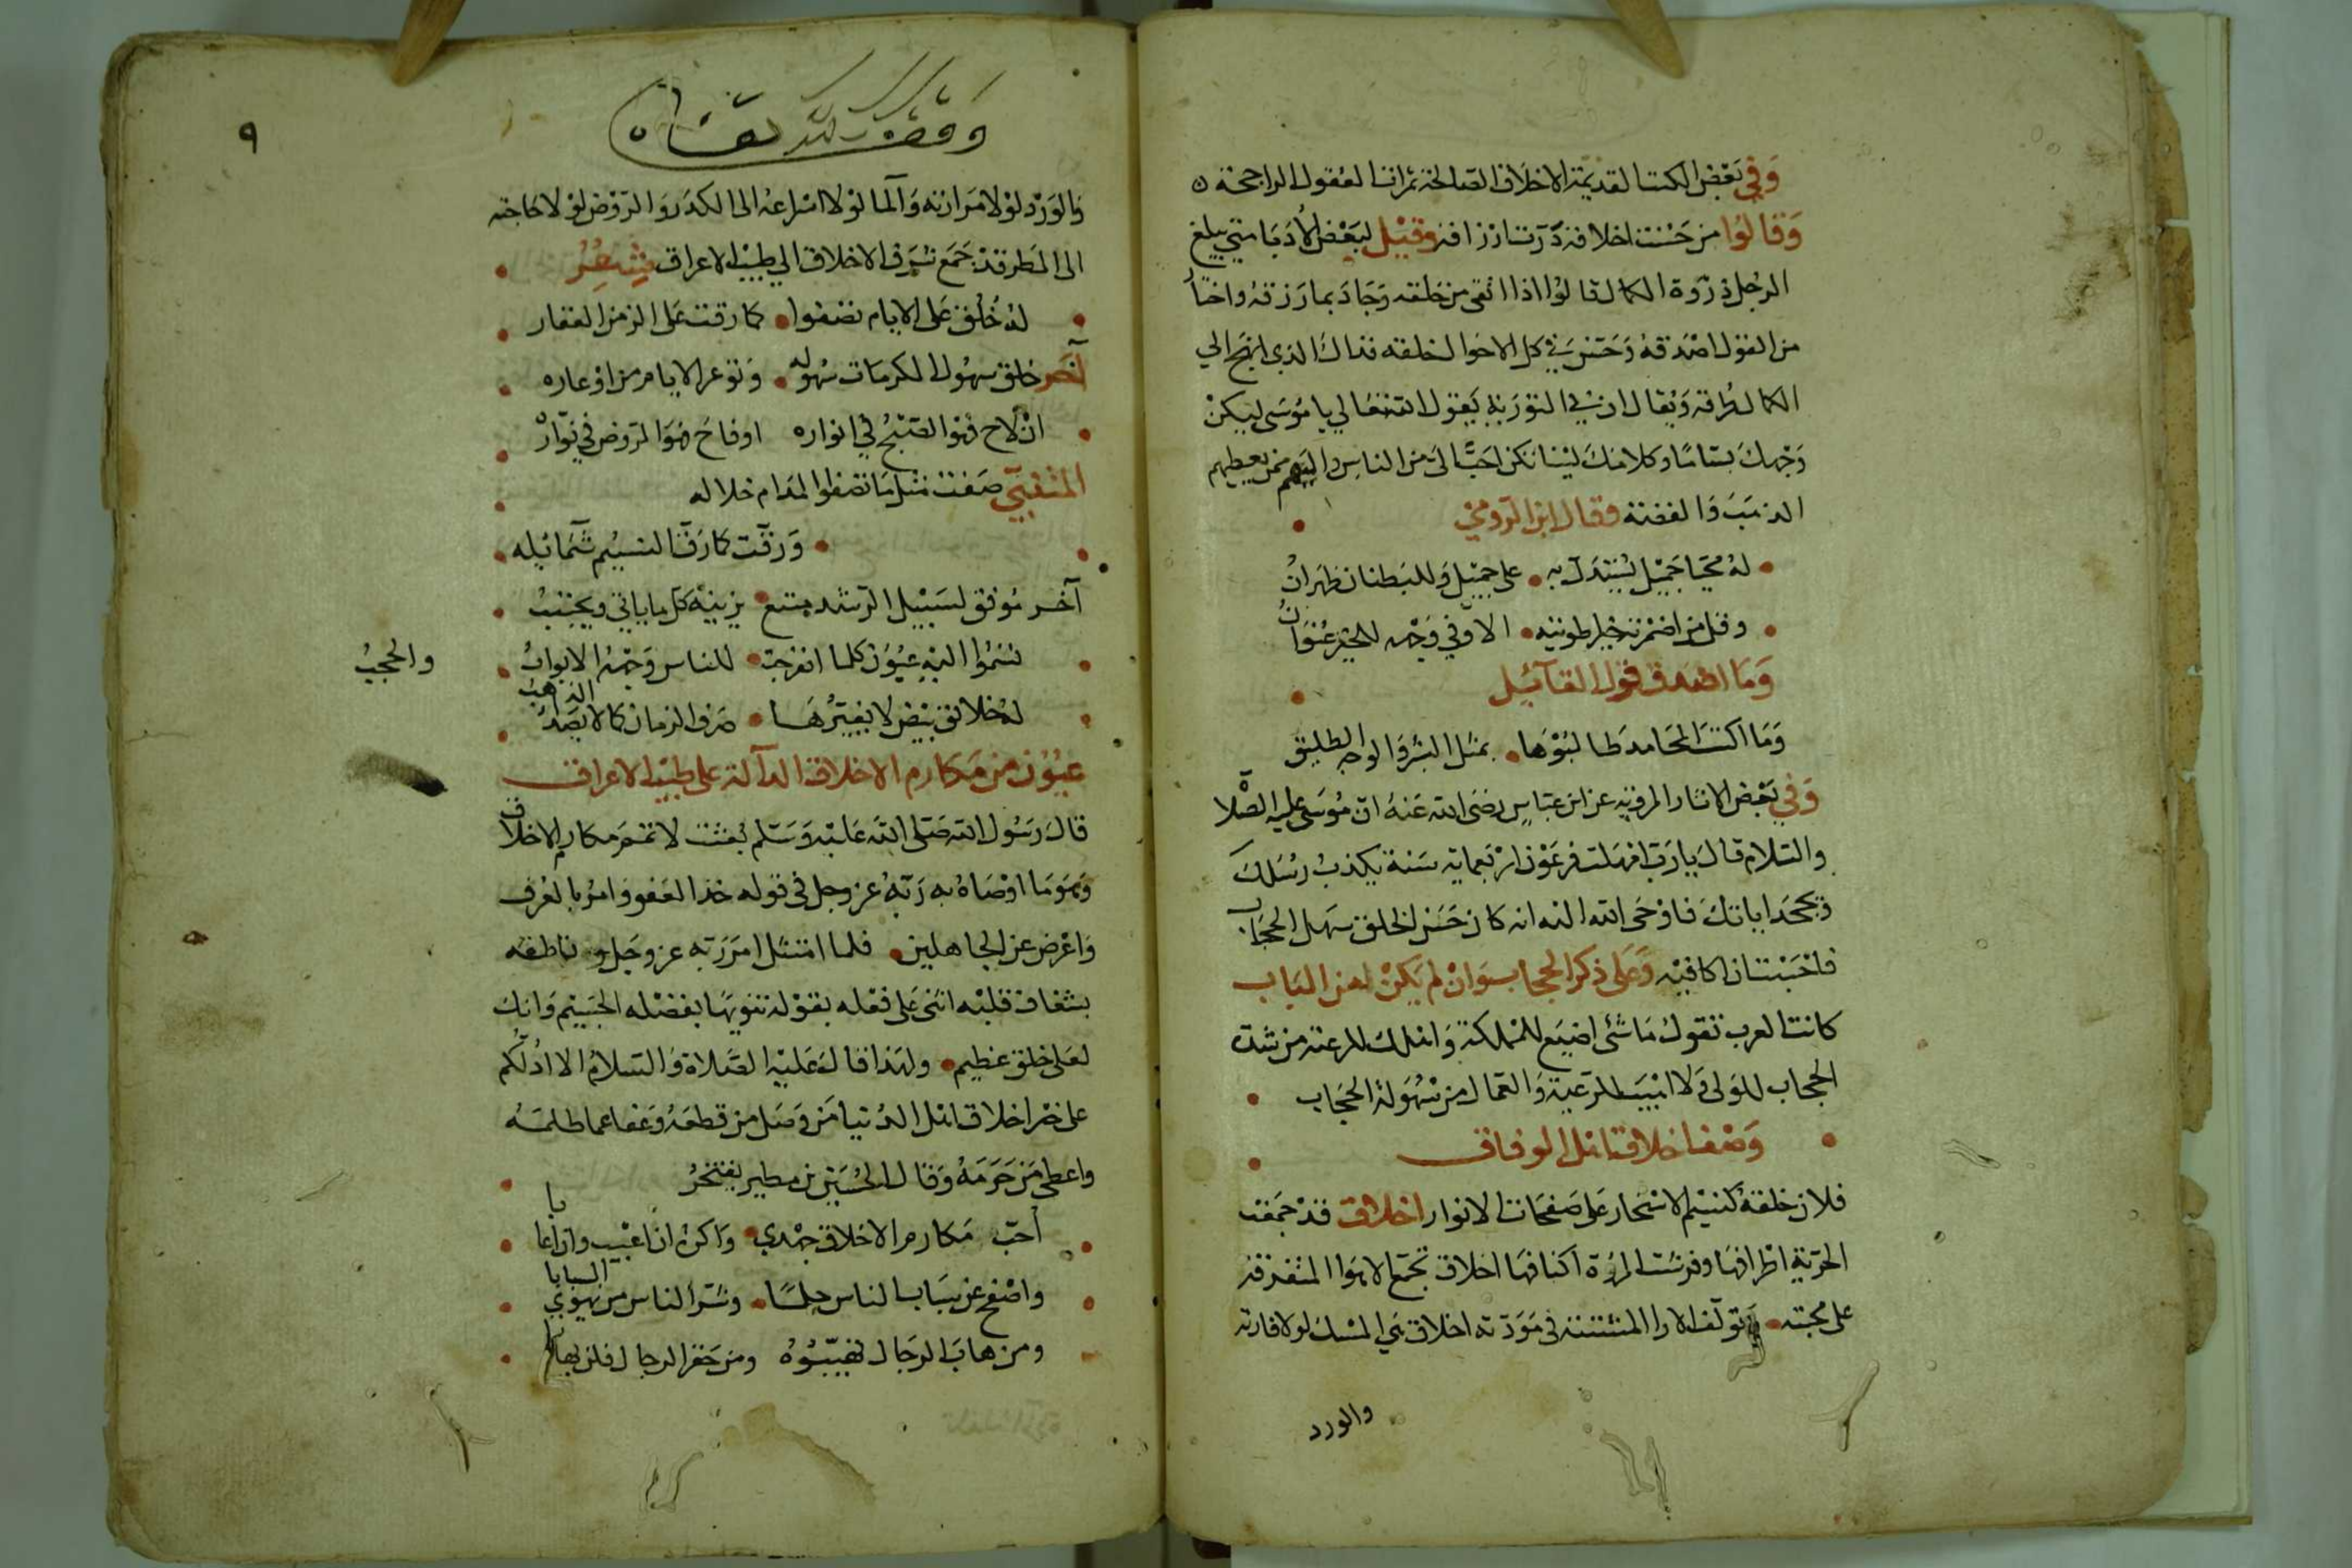 وَفي بَعْض الكتب القديمة الاخلاق الصالحة ثمرات العقول الراجحة ه
وَقالوُا من حَسُنت اخلاقه دَرّت ارزاقه وقيْل لبَعْض الأدَبَا متي يبلغ
الرجُل ذرْوة الكمال قالوُا اذا اتقى من خلقه وَجَادَ بما رَزقهُ واختارَ
من القول اصْدَقهُ وَحَسُن في كل الاحوال خلقه فذاك الذي انهج الي
الكمال طُرقه وَيُقال ان في التوْرَية يَقول الله تعَالي يا مُوسَى ليكنْ
وَجْهكَ بسّامًا وكلامك لينا تكن احَبّ الى من الناس واليهم ممن يعطيهم
الذهَبَ وَالفضة فقال ابن الرومي
له محيّا جَميْل يُسْتَدَلّ به على جميْل وَللبُطنان ظهرَانُ
وقل من اضمرت خيرا طويته الا وفي وَجْهه للخير عُنوَانُ
وَمَا اصْدق قول القآئيل
وَمَا اكتسَب المحَامدَ طالبُوْهَا بمثل البشْر وَالوجه الطليق
وَفي بَعْض الاثار المرويّه عن ابن عبّاسٍ رضى الله عَنهُ انّ مُوسَى عليه الصّلاة
والسّلام قال يا رَبّ امْهلت فرعَوْن ارْبَعماية سَنة يكذبُ رسُلكَ
وَيجحَدُ اياتك فاوْحَى الله اليه انه كان حَسَن الخلق سَهل الحجَاب
فاحْبَبْت ان اكافيْه وَعَلى ذكر الحجاب وَانْ لم يَكنْ من هذا البَاب
كانت العرب تقول مَا شَئ اضيَع للمْملكة وَاهلك للرعيّة من شدة
الحجاب للوَلى وَلا اهْيَب للرَّعيّة وَالعمال من سُهولة الحجَاب
وَصْف اخلاق اهْل الوفاق
فلان خلقهُ كنسيْم الاسْحار عَلى صَفحَات الانوار اخلاق قدْ جَمَعَت
الحرّية اطْرافهَا وفرشت المرُوْة اكنافهَا اخلاق تجمَع الاهوَا المتفرقة
على محبته وَتؤلف الارا المتشتتة في مَوَدّته اخلاق هَي المسْك لولا فارته
والورد
وَقف لله تعالى
٩
وَالوَرْد لوْلا مَرَارته وَالما لوْلا اسْراعهُ الى الكدَر وَالرّوْض لوْلا حَاجته
الى المَطر قدْ جَمَع شَرَف الاخلاق الي طيْب الاعراق شِعْر
لهُ خُلْق عَلى الايام تصْفوا كما رقت عَلى الزمن العقار
آخَر خلق سهُول المكرمَات سُهوله وَتوعر الايام من اوْعاره
انْ لاَح فهْو الصّبْحُ في انواره اوفاحَ فهوَ الرّوض في نوّارهْ
المتنبّي صَفت مثل مَا تصْفوا المدَام خلاله
وَرقّت كمَا رَقّ النسيْم شَمَائله
آخر مُوفق لسَبيْل الرّشد متبع يزينهُ كل ما ياتي ويجتنبُ
تسْمُوا اليْهِ عيُوْن كلما انفرجت للناس وَجْهُه الابوابُ
والحجبُ
لهُ خلائق بيْض لا يغيّرُهَا صَرف الزمان كما لا يَصْدأ الذهبُ
عيُوْن من مَكارم الاخلاق الدآلة على طيْب الاعراق
قالَ رَسُول الله صَلى الله عَليْه وَسَلم بُعثت لاتمم مَكارم الاخلاق
وَهوَ مَا اوْصَاهُ به رَبّهُ عز وجل في قوله خذ العَفو وَامُر بالعُرف
وَاعْرض عن الجاهلين فلما امتثل امرَ رَبه عز وجَل و ناطقه
بشغاف قلبْه اثنى عَلى فعْله بقوْله تنويْهًا بفضْله الجَسيْم وَانك
لعَلى خلق عَظيم ولهذا قال عَليْه الصَّلاة وَالسَلامُ الا ادُلّكم
على خيْر اخلاق اهْل الدّنيا مَن وَصَل من قطعَهُ وَعَفا عما ظلمَهُ
واعطى مَن حَرَمَهُ وَقال الحُسَيْن بن مطير يفتخرُ
أحبّ مَكارم الاخلاق جهْدي وَاكرهُ ان اعيْب وان اعابا
واصْفح عن سبَاب الناس حلمًا وشرّ الناس من يهْوى السبابا
ومن هابَ الرجَال تهَيّبُوهُ ومن حَقر الرجال فلن يهابا